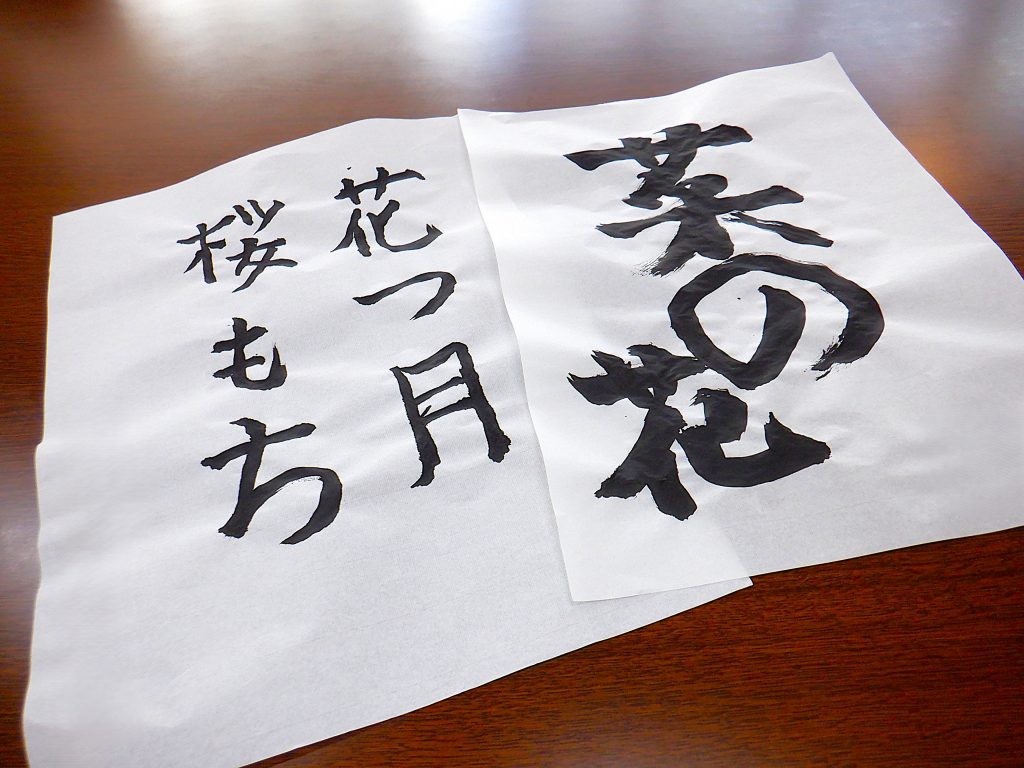 菜の花
花つ月
桜もち